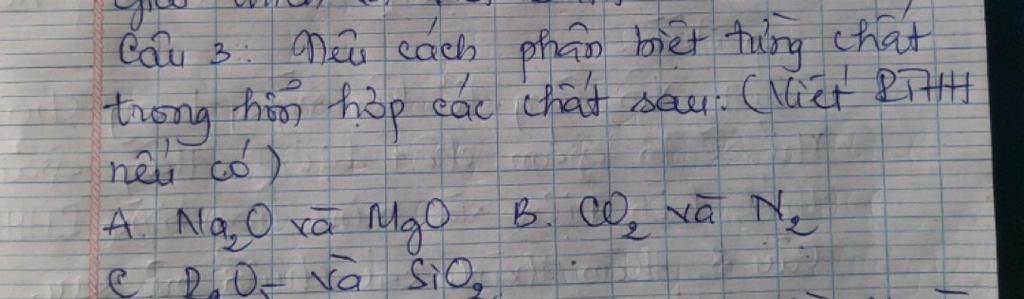 Câu 3: Nêu cách phân biệt từng chất
trong hỗn hợp các chất sau: (Viết PTHH
nếu có)
A. Na₂O và MgO B. CO₂ và N₂
C P₂O₅ và SiO₂